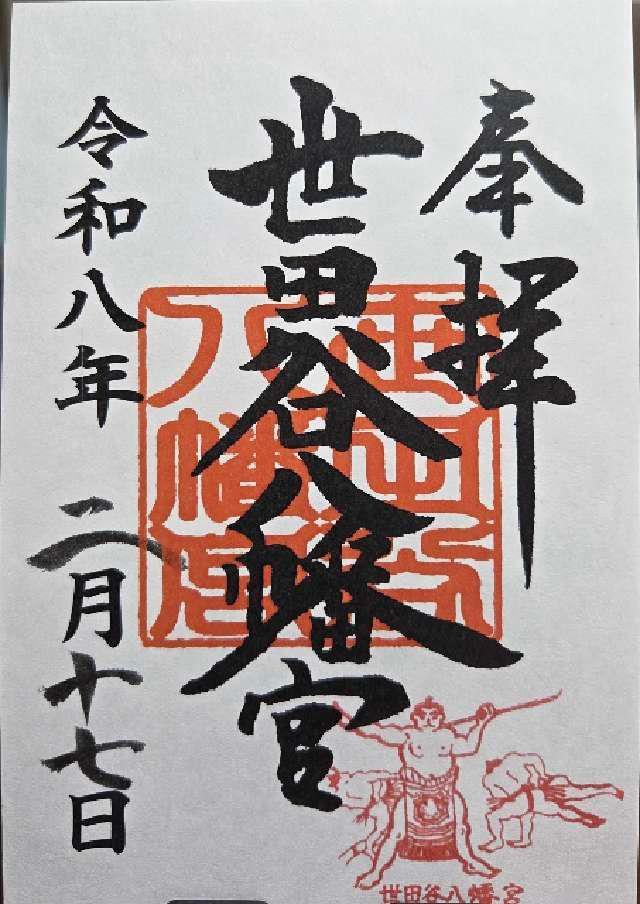 奉拝
世田谷八幡宮
世田谷八幡宮
令和八年 二月十七日
世田谷八幡宮